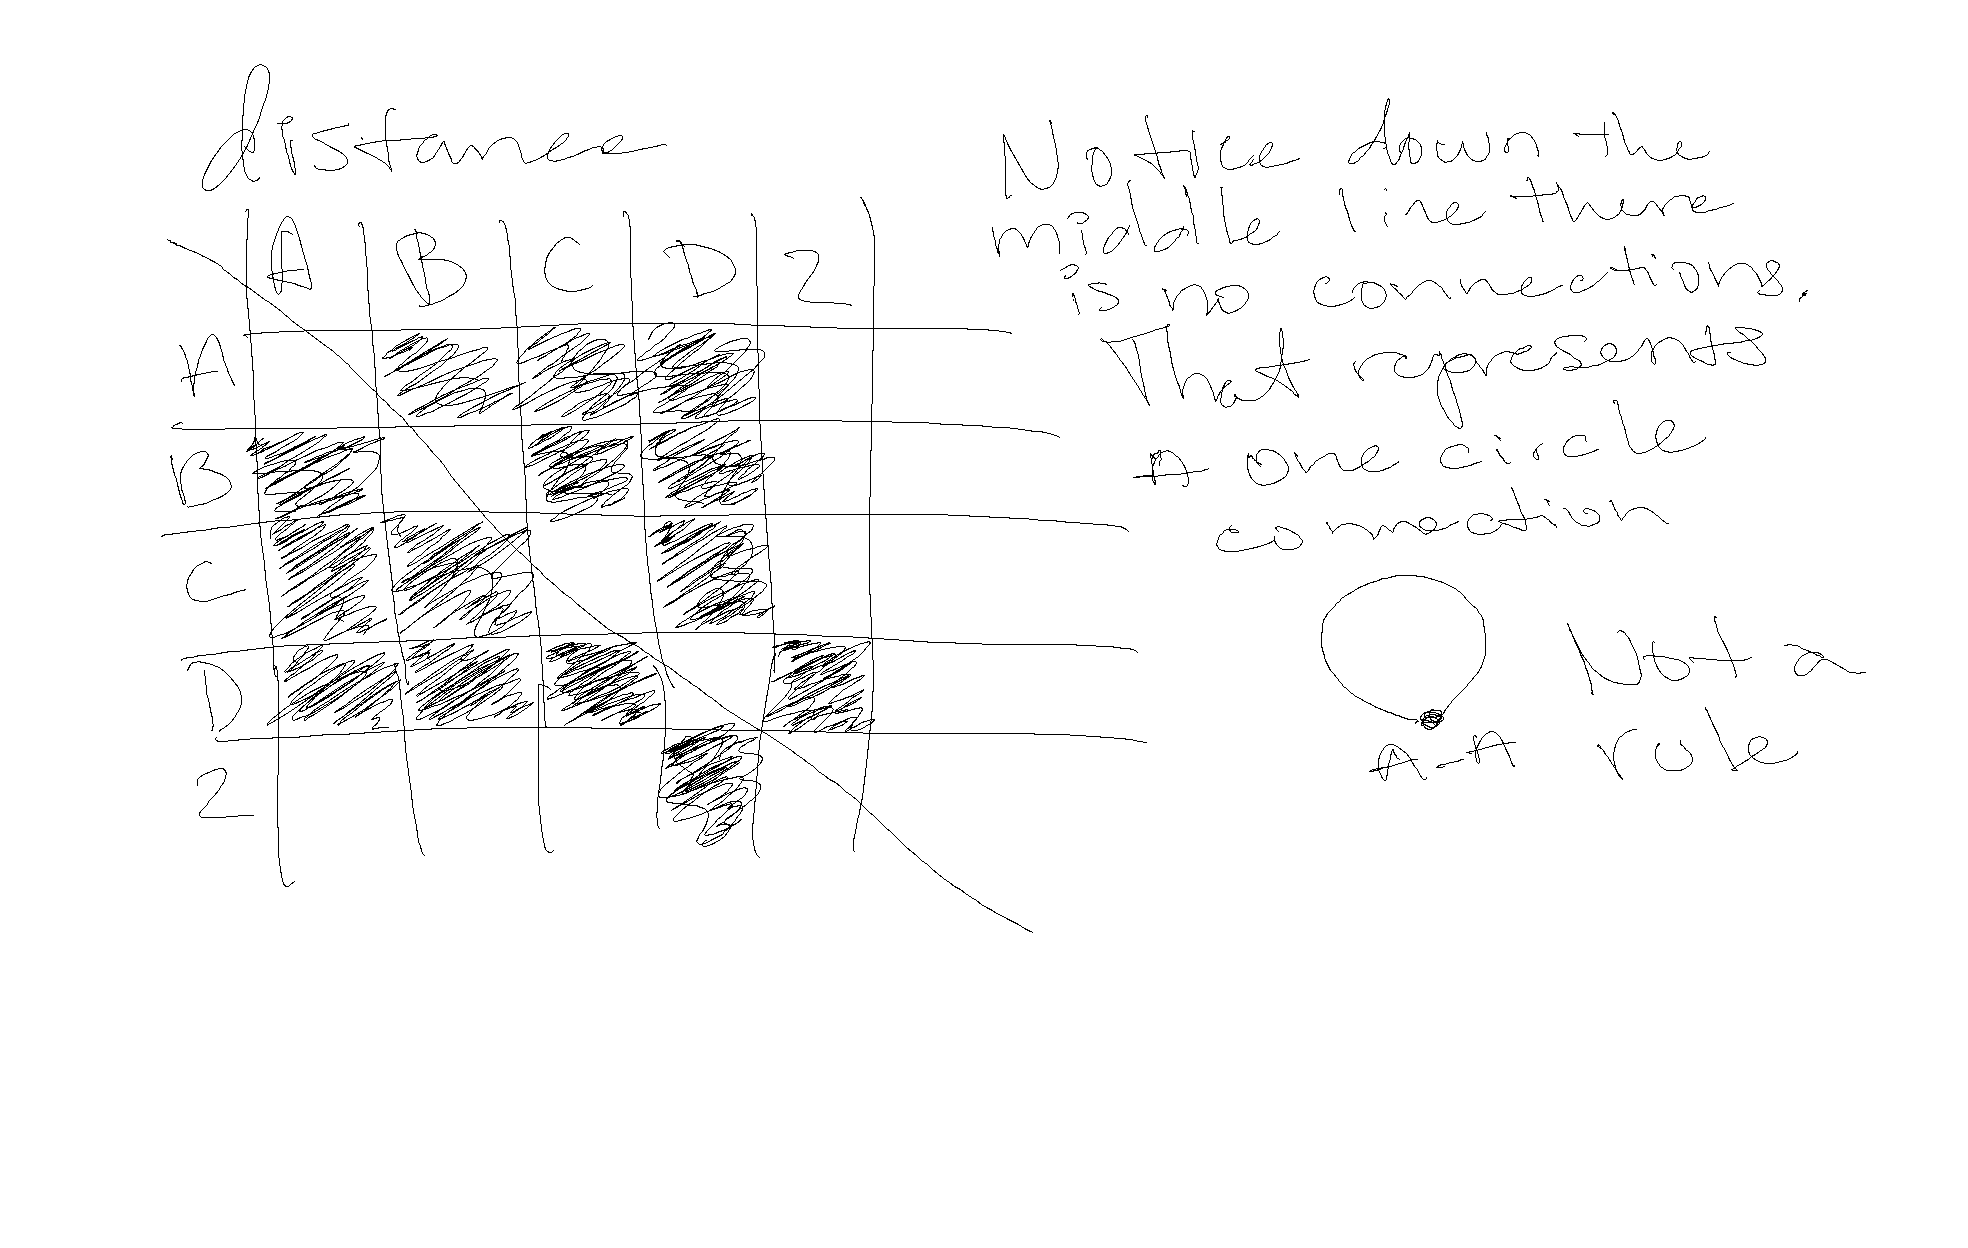 distance
A B C D 2
A
B
C
D
2
Notice down the
middle line there
is no connections.
That represents
A one circle
connection
Not a
A-A rule